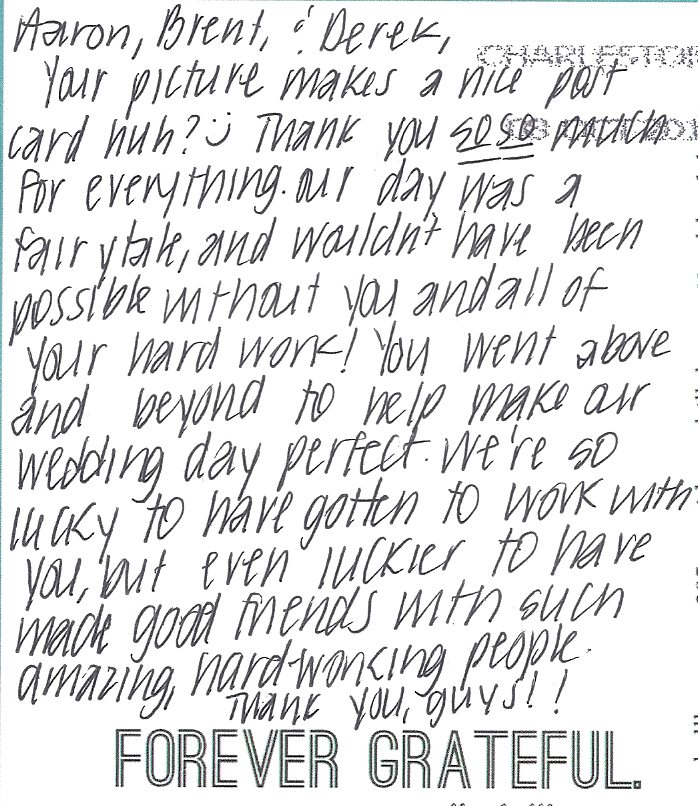 Aaron, Brent, & Derek,
CHARLESTON
Your picture makes a nice post
card huh? :) Thank you so so much
for everything. Our day was a
fairytale, and wouldn't have been
possible without you and all of
your hard work! You went above
and beyond to help make our
wedding day perfect. We're so
lucky to have gotten to work with
you, but even luckier to have
made good friends with such
amazing, hard-working people.
Thank you, guys!!
FOREVER GRATEFUL.